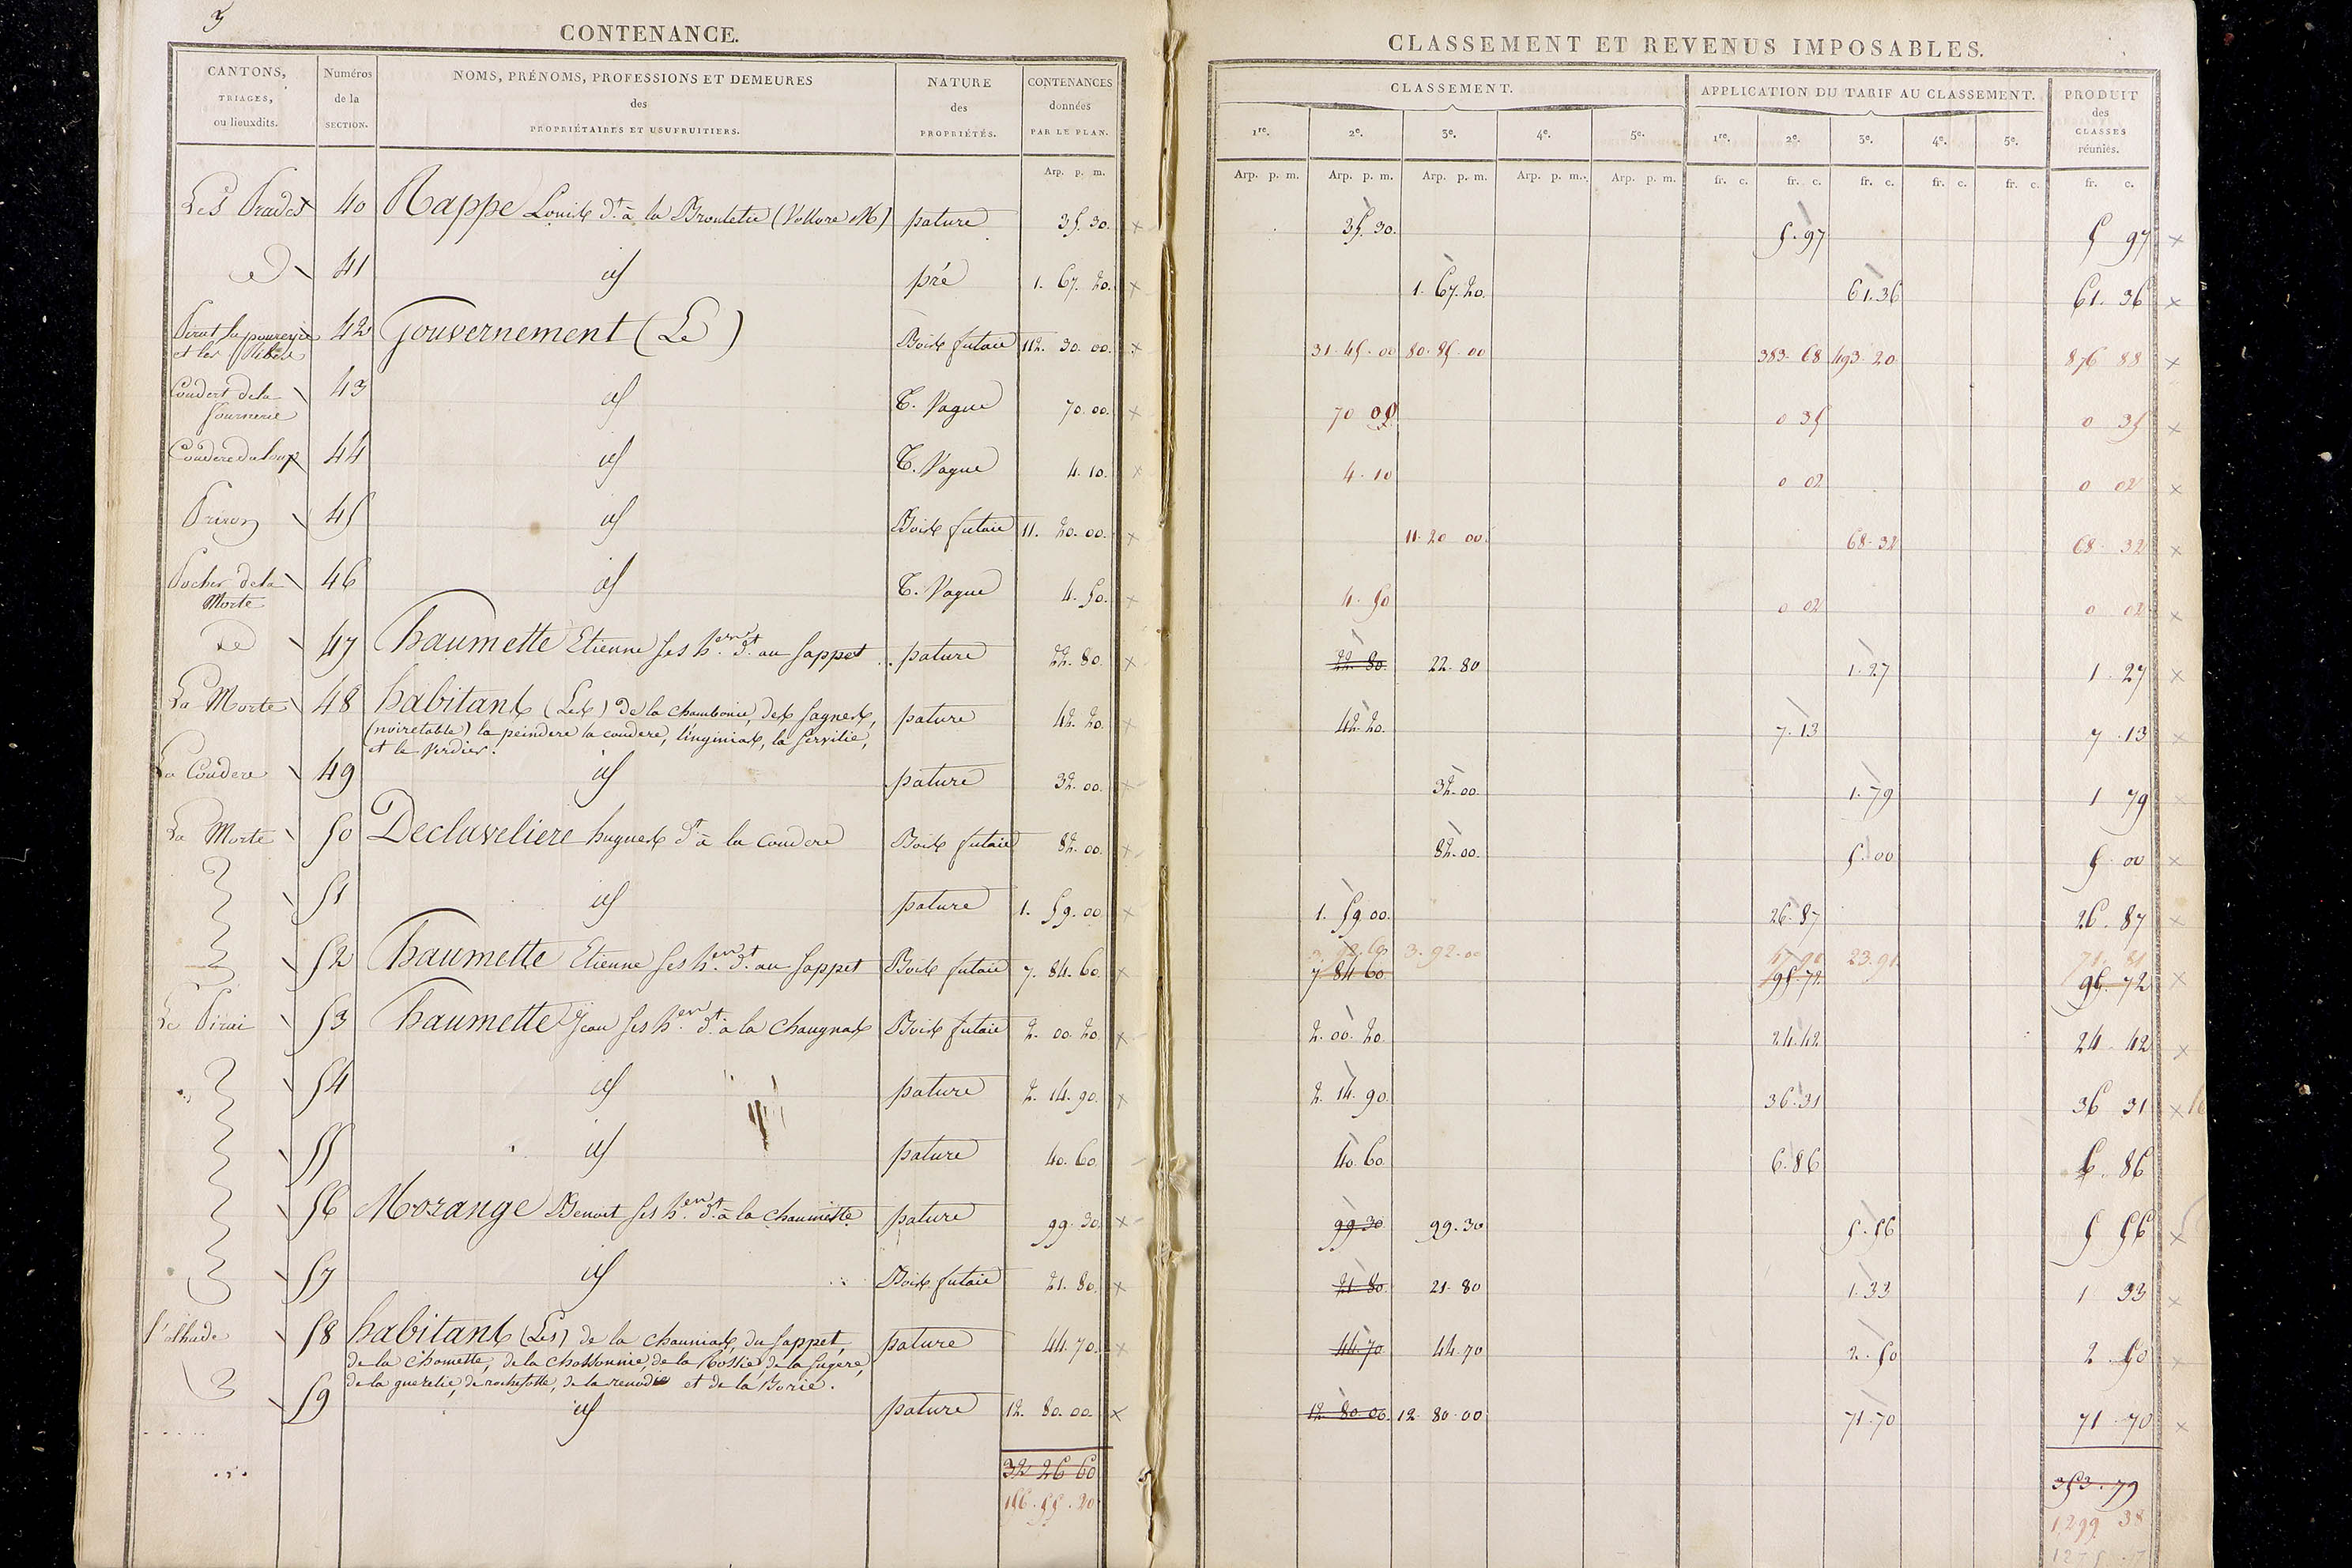 3
CONTENANCE.
CLASSEMENT ET REVENUS IMPOSABLES.
CANTONS, TRIAGES, ou lieuxdits. Numéros de la SECTION. NOMS, PRÉNOMS, PROFESSIONS ET DEMEURES des PROPRIÉTAIRES ET USUFRUITIERS. NATURE des PROPRIÉTÉS. CONTENANCES données PAR LE PLAN. CLASSEMENT. APPLICATION DU TARIF AU CLASSEMENT. PRODUIT des CLASSES réunies.
1re. 2e. 3e. 4e. 5e. 1re. 2e. 3e. 4e. 5e.
Arp. p. m. Arp. p. m. Arp. p. m. Arp. p. m. Arp. p. m. Arp. p. m. fr. c. fr. c. fr. c. fr. c. fr. c. fr. c.
Les Prades 40 Rappe Louis dt. à la (Vollore M) pature 35. 30. x 35. 30. 5. 97 5 97 x
d 41 id pré 1. 67. 20. x 1. 67. 20. 61. 36 61. 36 x
et les 42 Gouvernement (Le) Bois futaie 112. 30. 00. x 31. 45. 00 80. 85. 00 383. 68 493. 20 876 88 x
Coudert de la 43 id T. Vague 70. 00. x 70 00 0 35 0 35 x
44 id T. Vague 4. 10. x 4. 10 0 02 0 02 x
45 id Bois futaie 11. 20. 00. x 11. 20 00. 68. 32 68. 32 x
Rocher de la Morte 46 id T. Vague 4. 50. x 4. 50 0 02 0 02 x
de 47 Chaumette Etienne ses hers. dt. au Sappet pature 22. 80. x 22. 80. 22. 80 1. 27 1. 27 x
La Morte 48 habitants (Les) de la Chambonie, des Sagnes,
(noiretable) la peindere la coudere, l'inginias, la Servilie,
et le Verdier. pature 42. 20. x 42. 20. 7. 13 7. 13 x
La Coudere 49 id pature 32. 00. x 32. 00. 1. 79 1 79 x
La Morte 50 Declaveliere hugues dt à la Coudere Bois futaie 82. 00. x 82. 00. 5. 00 5. 00 x
51 id pature 1. 59. 00. x 1. 59. 00. 26. 87 26. 87 x
3. 92. 60 3. 92. 00 47. 90 23. 91 71. 81
52 Chaumette Etienne ses hers. dt. au Sappet Bois futaie 7. 84. 60. x 7 84 60 95. 72 95. 72 x
Le 53 Chaumette Jean ses hers. dt. à la Bois futaie 2. 00. 20. x 2. 00. 20. 24. 42 24. 42 x
54 id pature 2. 14. 90. x 2. 14. 90. 36. 31 36 31 x
55 id pature 40. 60. 40. 60 6. 86 6. 86
56 Morange Benoit ses hers. dt. à la Chaumette pature 99. 30. x 99 30 99. 30 5. 56 5 56 x
57 id Bois futaie 21. 80. x 21. 80. 21. 80 1. 33 1 33 x
58 habitants (Les) de la chauniat, du Sappet,
de la Chomette, de la Chossonnie, de la Rossie, de la Sugere,
de la querelie, de rochefotte, de la renodie et de la Borie. pature 44. 70. x 44. 70 44. 70 2. 50 2. 50 x
59 id pature 12. 80. 00. x 12. 80. 00. 12. 80. 00 71. 70 71. 70 x
32 26 60 353. 79
156. 55. 20 1,299 38